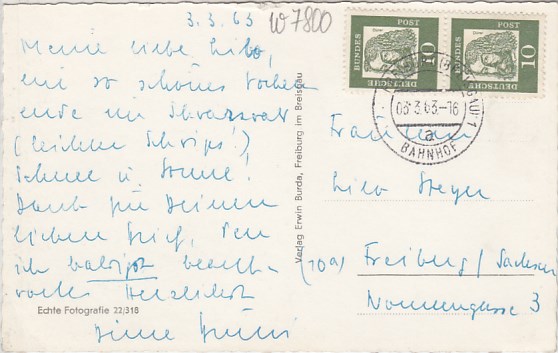 3.3.63
W 7800
Meine liebe Lilo,
ein so schönes Wochen
ende im Schwarzwald
(leichter Schwips!)
Schnee u. Sonne!
Dank für Deinen
lieben Brief, den
ich baldigst beant-
worte Herzlichst
Deine
Echte Fotografie 22/318
Verlag Erwin Burda, Freiburg im Breisgau
DEUTSCHE BUNDESPOST 10
DEUTSCHE BUNDESPOST 10
03.3.63.-16
a
BAHNHOF
Frau
Lilo Steyer
(10a) Freiberg / Sachsen
Nonnengasse 3